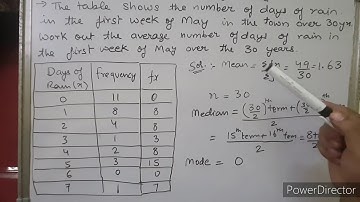 → The table shows the number of days of rain
in the first week of May in the town over 30yr.
Work out the average number of days of rain in
the first week of May over the 30 years.
Days of Rain(x) frequency fx
0 11 0
1 8 8
2 4 8
3 1 3
4 2 8
5 3 15
6 0 0
7 1 7
Sol:- Mean = = 49/30 = 1.63
n = 30
Median = (30/2)th term + 
2
= 15th term + 16th term = 8+
2
Mode = 0
PowerDirector